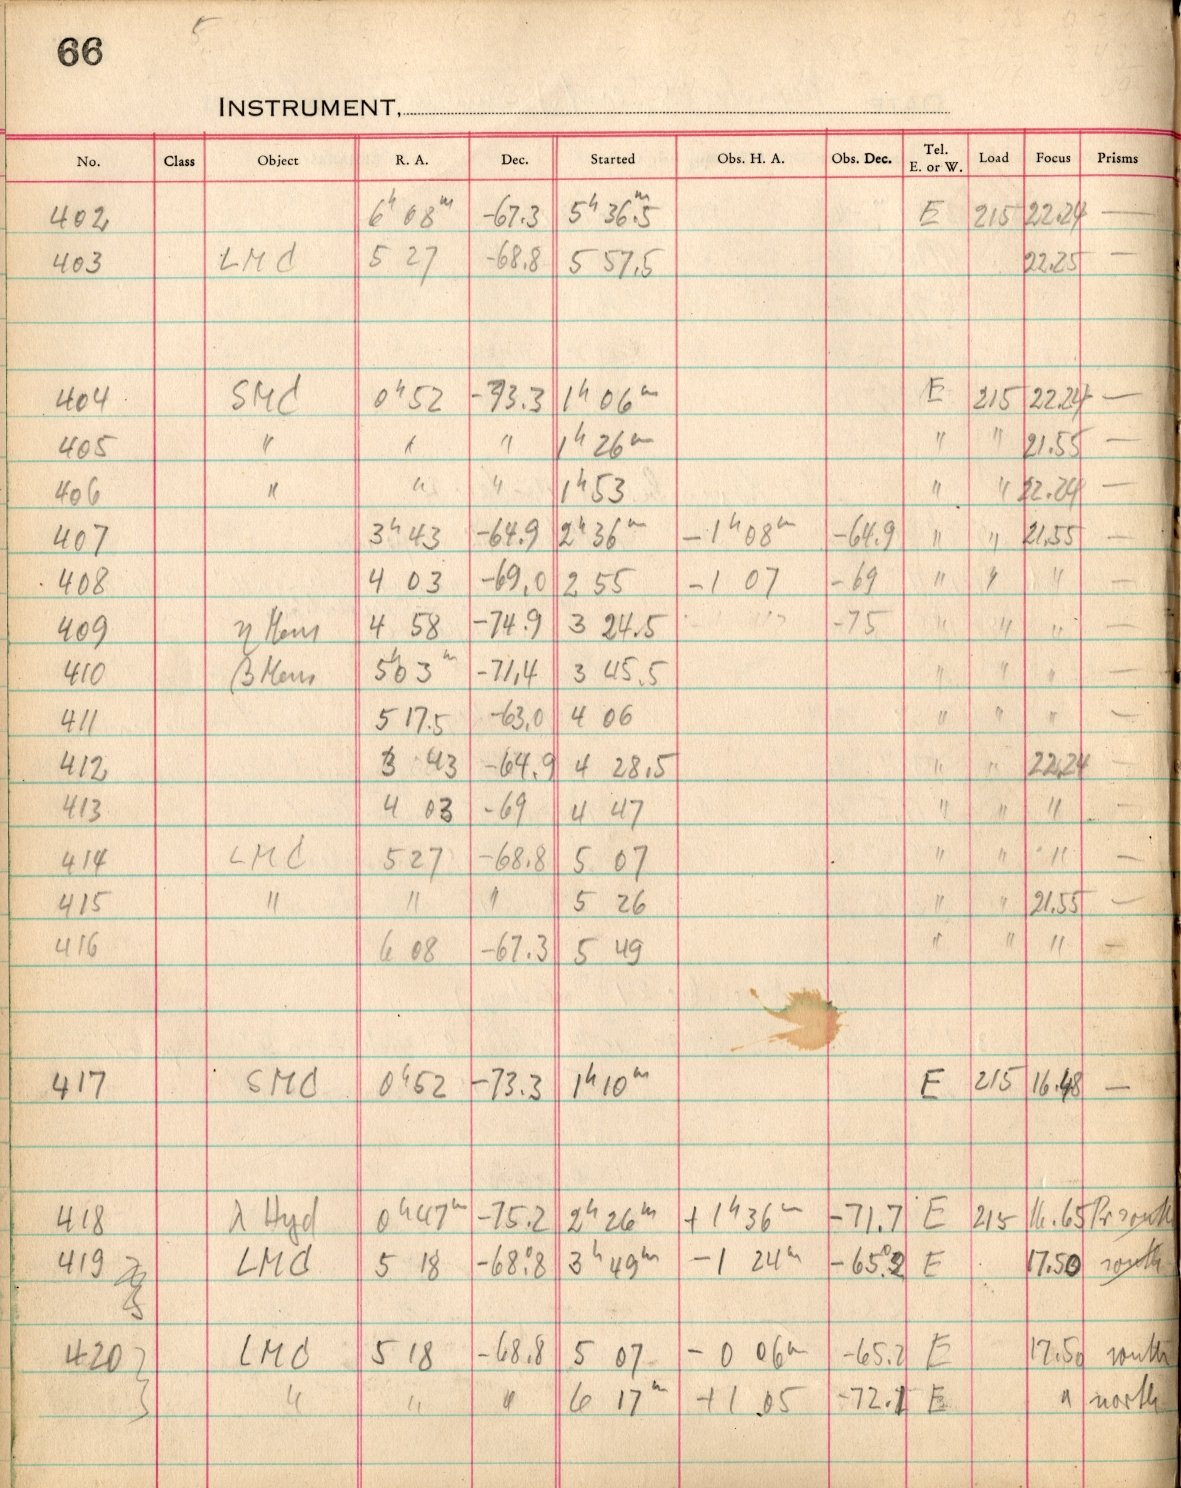 66
INSTRUMENT,
No. Class Object R. A. Dec. Started Obs. H. A. Obs. Dec. Tel. E. or W. Load Focus Prisms
402 6h 08m -67.3 5h 36.5m E 215 22.24 —
403 LMC 5 27 -68.8 5 57.5 22.25 —
404 SMC 0h 52 -73.3 1h 06m E 215 22.24 —
405 " " " 1h 26m " " 21.55 —
406 " " " 1h 53 " " 22.24 —
407 3h 43 -64.9 2h 36m -1h 08m -64.9 " " 21.55 —
408 4 03 -69.0 2 55 -1 07 -69 " " " —
409 η Mens 4 58 -74.9 3 24.5 " " -75 " " " —
410 β Mens 5h 03m -71.4 3 45.5 " " " —
411 5 17.5 -63.0 4 06 " " " —
412 3 43 -64.9 4 28.5 " " 22.24 —
413 4 03 -69 4 47 " " " —
414 LMC 5 27 -68.8 5 07 " " " —
415 " " " 5 26 " " 21.55 —
416 6 08 -67.3 5 49 " " " —
417 SMC 0h 52 -73.3 1h 10m E 215 16.48 —
418 λ Hyd 0h 47m -75.2 2h 26m +1h 36m -71.7 E 215 16.65 Pr south
419 LMC 5 18 -68.8 3h 49m -1 24m -65.2 E 17.50 south
420 LMC 5 18 -68.8 5 07 -0 06m -65.2 E 17.50 south
" " " 6 17m +1 05 -72.1 E " north